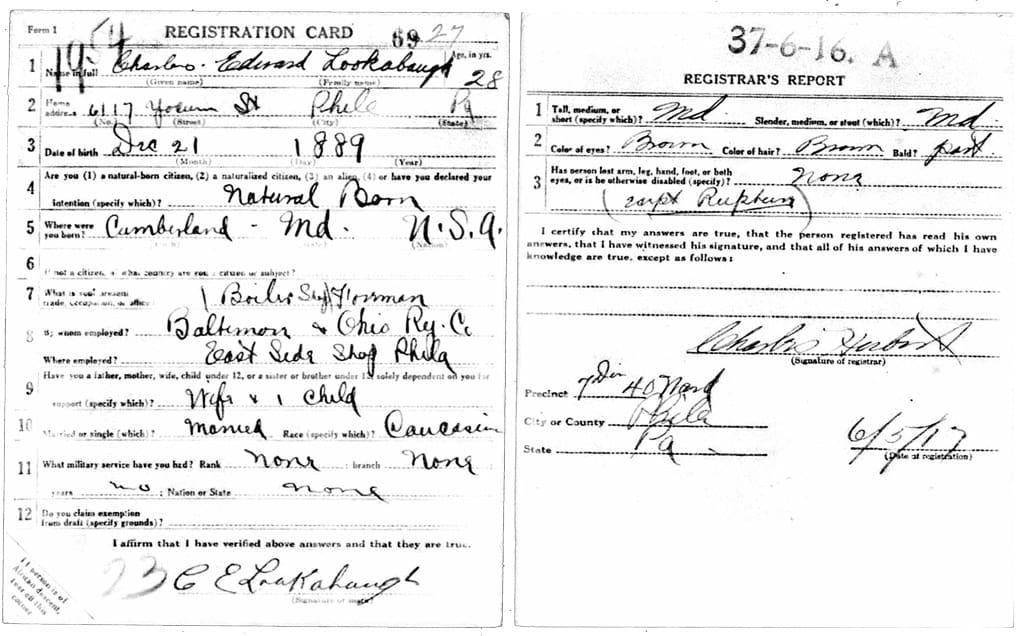 Form 1 REGISTRATION CARD 69 27
1954
1 Name in full Charles Edward Lookabaugh Age, in yrs. 28
(Given name) (Family name)
2 Home address 6117 Yocum St Phila Pa
(No.) (Street) (City) (State)
3 Date of birth Dec 21 1889
(Month) (Day) (Year)
Are you (1) a natural-born citizen, (2) a naturalized citizen, (3) an alien, (4) or have you declared your
4 intention (specify which)? Natural Born
5 Where were you born? Cumberland - Md. U.S.A.
(Nation)
6 If not a citizen, of what country are you a citizen or subject?
7 What is your present trade, occupation, or office? Boiler Foreman
8 By whom employed? Baltimore & Ohio Ry. Co
Where employed? East Side Shop Phila
Have you a father, mother, wife, child under 12, or a sister or brother under 12, solely dependent on you for
9 support (specify which)? Wife & 1 child
10 Married or single (which)? Married Race (specify which)? Caucasian
11 What military service have you had? Rank None ; branch None ;
years no ; Nation or State None
12 Do you claim exemption from draft (specify grounds)?
I affirm that I have verified above answers and that they are true.
23 C E Lookabaugh
(Signature or mark)
If person is of
African descent,
tear off this
corner
37-6-16. A
REGISTRAR'S REPORT
1 Tall, medium, or short (specify which)? Md Slender, medium, or stout (which)? Md.
2 Color of eyes? Brown Color of hair? Brown Bald? part.
3 Has person lost arm, leg, hand, foot, or both eyes, or is he otherwise disabled (specify)? none
Rupture)
I certify that my answers are true, that the person registered has read his own
answers, that I have witnessed his signature, and that all of his answers of which I have
knowledge are true, except as follows:
Charles Herbert
(Signature of registrar)
Precinct 7 Div 40 Ward
City or County Phila
State Pa
6/5/17
(Date of registration)